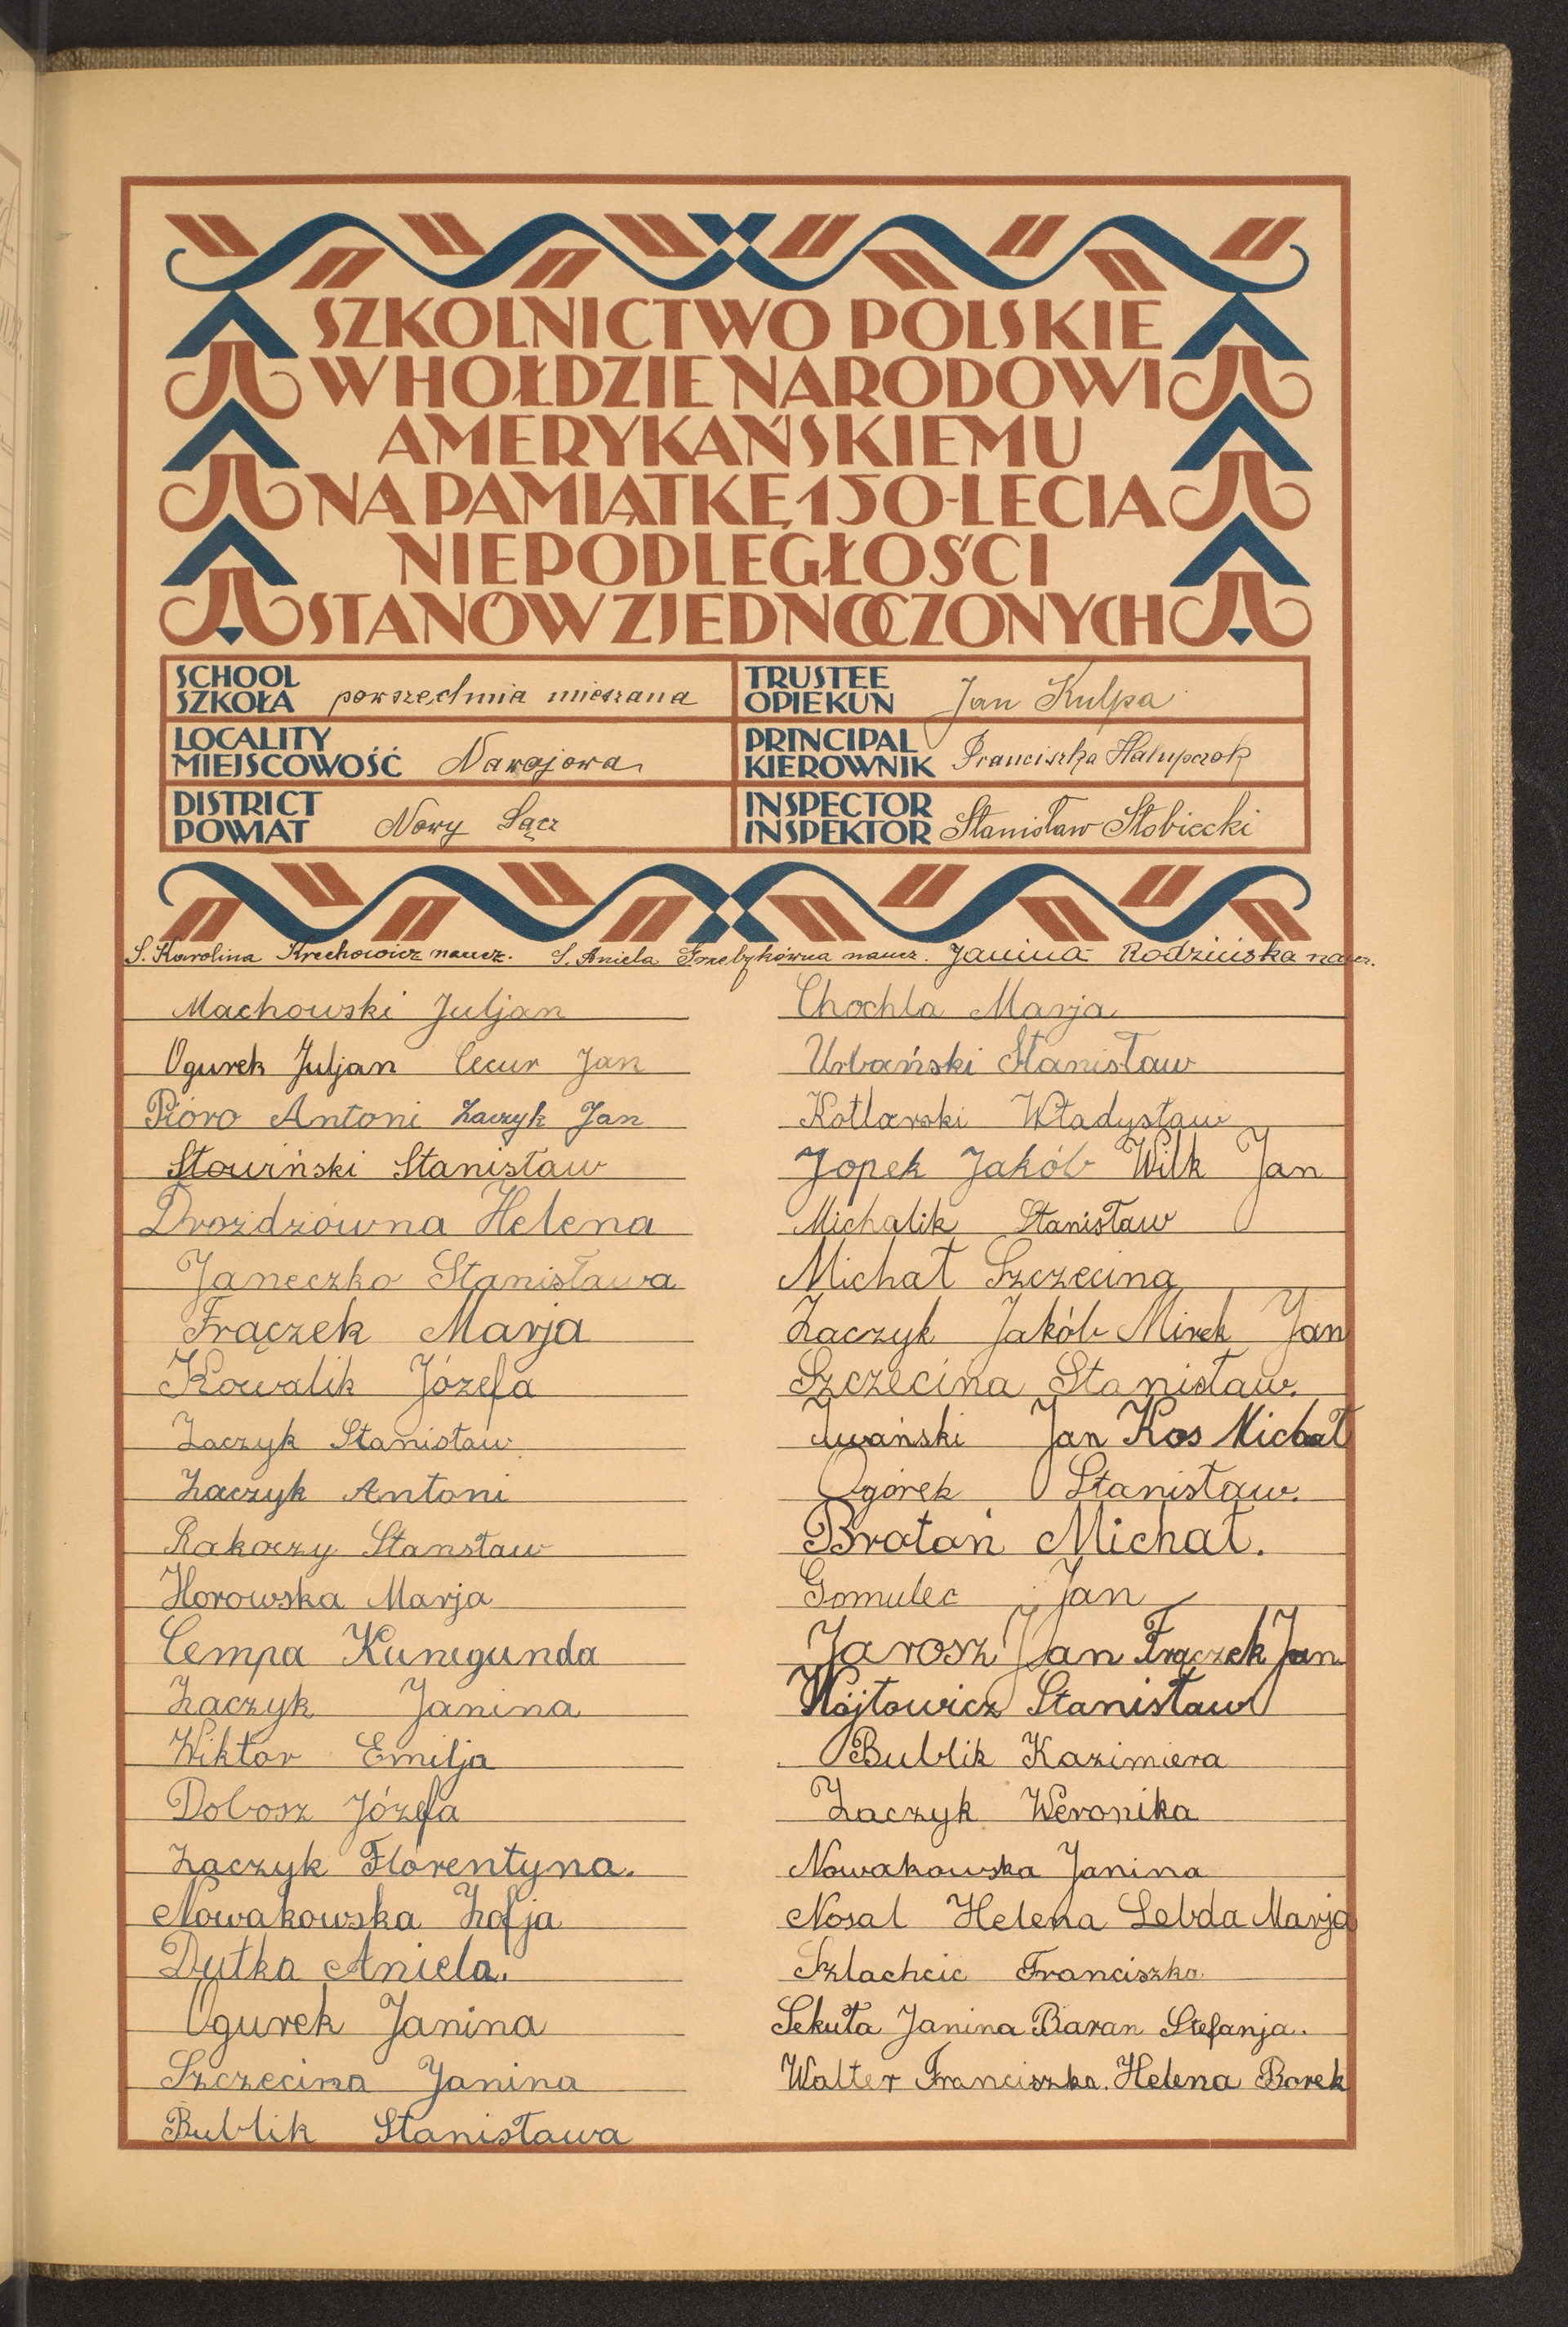 SZKOLNICTWO POLSKIE
W HOŁDZIE NARODOWI
AMERYKAŃSKIEMU
NA PAMIĄTKĘ 150-LECIA
NIEPODLEGŁOŚCI
STANÓW ZJEDNOCZONYCH
SCHOOL
SZKOŁA powszechnia mieszana
TRUSTEE
OPIEKUN Jan Kulpa
LOCALITY
MIEJSCOWOŚĆ Nawojowa
PRINCIPAL
KIEROWNIK Franciszka Hałupczok
DISTRICT
POWIAT Nowy Sącz
INSPECTOR
INSPEKTOR Stanisław Słobiecki
S. Karolina Krechowicz naucz. S. Aniela naucz. Janina Rodzińska naucz.
Machowski Juljan
Ogurek Juljan Cecur Jan
Pióro Antoni Łaczyk Jan
Słowiński Stanisław
Drozdzówna Helena
Janeczko Stanisława
Frączek Marja
Kowalik Józefa
Łaczyk Stanisław
Łaczyk Antoni
Rakoczy Stansław
Horowska Marja
Cempa Kunegunda
Łaczyk Janina
Wiktor Emilja
Dobosz Józefa
Łaczyk Florentyna.
Nowakowska Zofja
Dutka Aniela.
Ogurek Janina
Szczecina Janina
Bublik Stanisława
Chochla Marja
Urbański Stanisław
Kotlarski Władysław
Jopek Jakób Wilk Jan
Michalik Stanisław
Michał Szczecina
Łaczyk Jakób Mirek Jan
Szczecina Stanisław.
Iwański Jan Kos Michał
Ogórek Stanisław.
Bratań Michał.
Gomulec Jan
Jarosz Jan Frączek Jan
Wójtowicz Stanisław
Bublik Kazimiera
Łaczyk Weronika
Nowakowska Janina
Nosal Helena Lebda Marja
Szlachcic Franciszka.
Sekuła Janina Baran Stefanja.
Walter Franciszka. Helena Borek